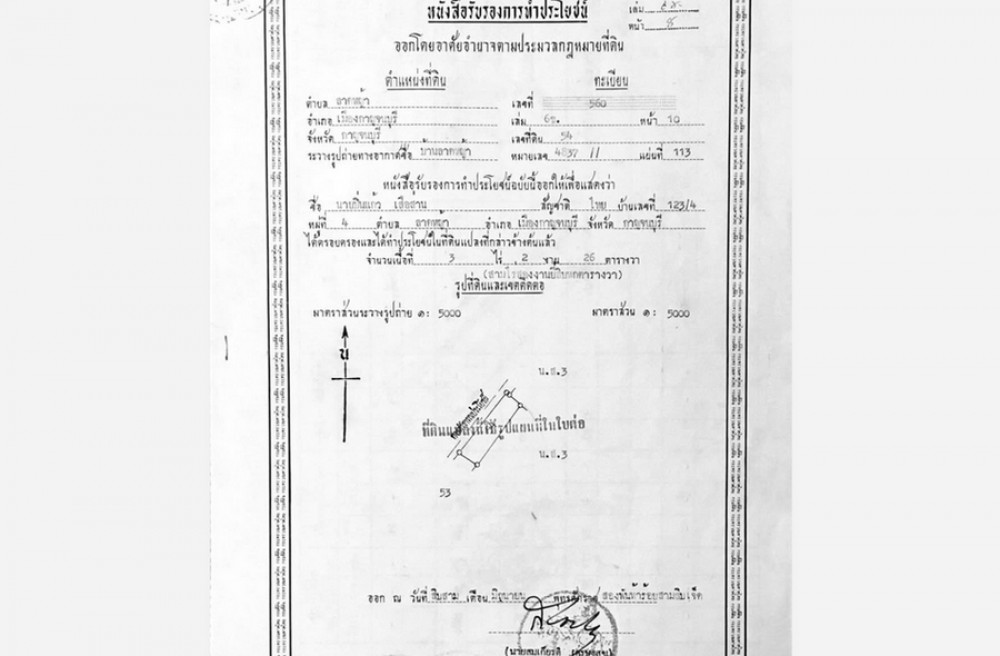 หนังสือรับรองการทำประโยชน์
เล่ม
หน้า 5
ออกโดยอาศัยอำนาจตามประมวลกฎหมายที่ดิน
ตำแหน่งที่ดิน ทะเบียน
ตำบล ลาดหญ้า เลขที่ 560
อำเภอ เมืองกาญจนบุรี เล่ม 6ข. หน้า 10
จังหวัด กาญจนบุรี เลขที่ดิน 54
ระวางรูปถ่ายทางอากาศชื่อ บ้านลาดหญ้า หมายเลข 4837 II แผ่นที่ 113
หนังสือรับรองการทำประโยชน์ฉบับนี้ออกให้เพื่อแสดงว่า
ชื่อ นายปิ่นแก้ว สัญชาติ ไทย บ้านเลขที่ 123/4
หมู่ที่ 4 ตำบล ลาดหญ้า อำเภอ เมืองกาญจนบุรี จังหวัด กาญจนบุรี
ได้ครอบครองและได้ทำประโยชน์ในที่ดินแปลงที่กล่าวข้างต้นแล้ว
จำนวนเนื้อที่ 3 ไร่ 2 งาน 26 ตารางวา
(สามไร่สองงานยี่สิบหกตารางวา)
รูปที่ดินและเขตติดต่อ
มาตราส่วนระวางรูปถ่าย ๑: 5000 มาตราส่วน ๑: 5000
น
น.ส.3
ที่ดินแปลงนี้ใช้รูปแผนที่ใบต่อ
น.ส.3
53
ออก ณ วันที่ สิบสาม เดือน มิถุนายน พุทธศักราช สองพันห้าร้อยสามสิบเจ็ด
(นายสมเกียรติ